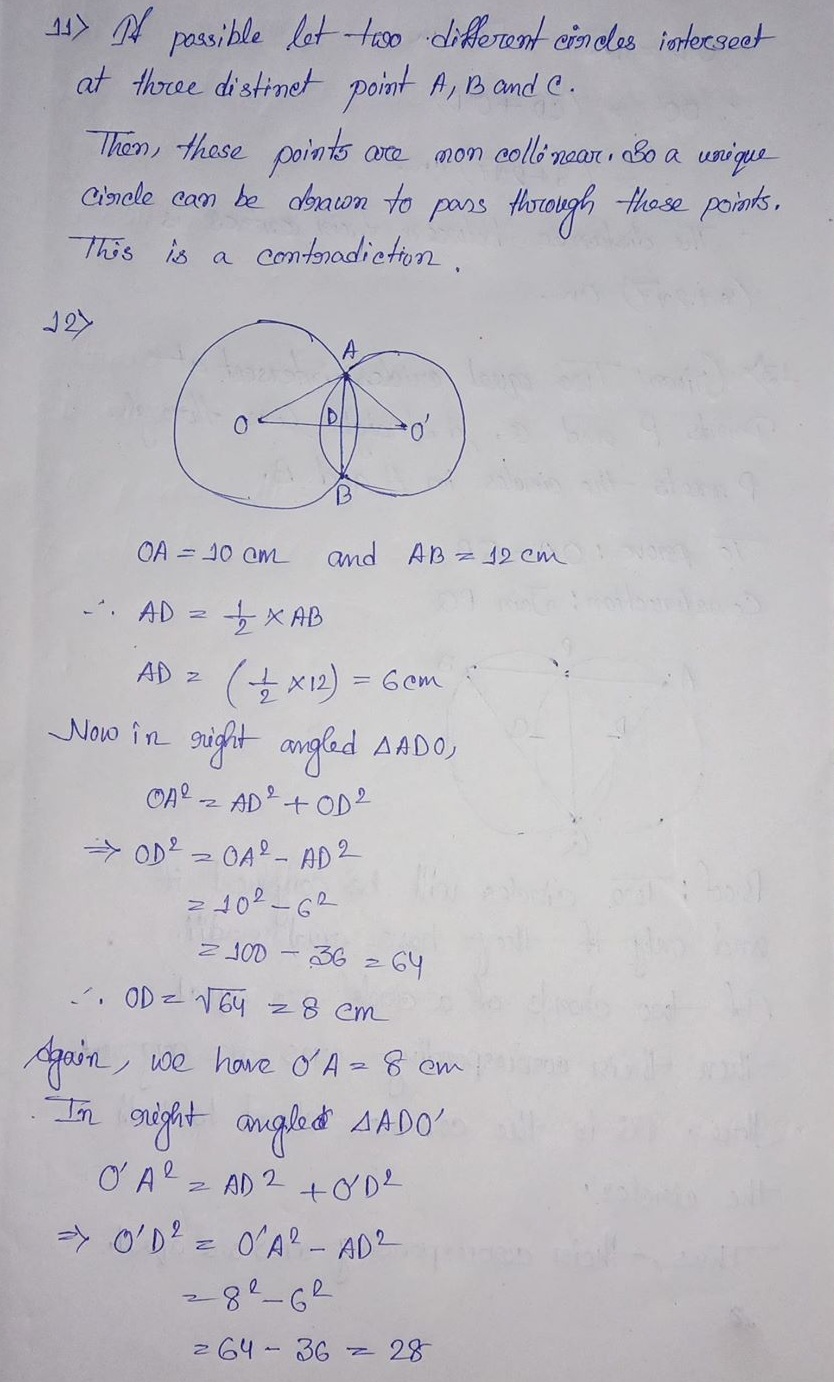 11) If possible let two different circles intersect
at three distinct point A, B and C.
Then, these points are non collinear. So a unique
circle can be drawn to pass through these points.
This is a contradiction.
12)
A
O D O'
B
OA = 10 cm and AB = 12 cm
∴ AD = 1/2 × AB
AD = (1/2 × 12) = 6cm
Now in right angled ΔADO,
OA² = AD² + OD²
⇒ OD² = OA² - AD²
= 10² - 6²
= 100 - 36 = 64
∴ OD = √64 = 8 cm
Again, we have O'A = 8 cm
In right angled ΔADO'
O'A² = AD² + O'D²
⇒ O'D² = O'A² - AD²
= 8² - 6²
= 64 - 36 = 28